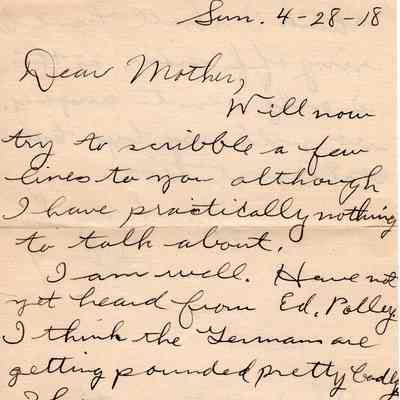 Sun. 4-28-18
Dear Mother,
Will now
try to scribble a few
lines to you although
I have practically nothing
to talk about.
I am well. Have not
yet heard from Ed. Polley.
I think the Germans are
getting pounded pretty badly.